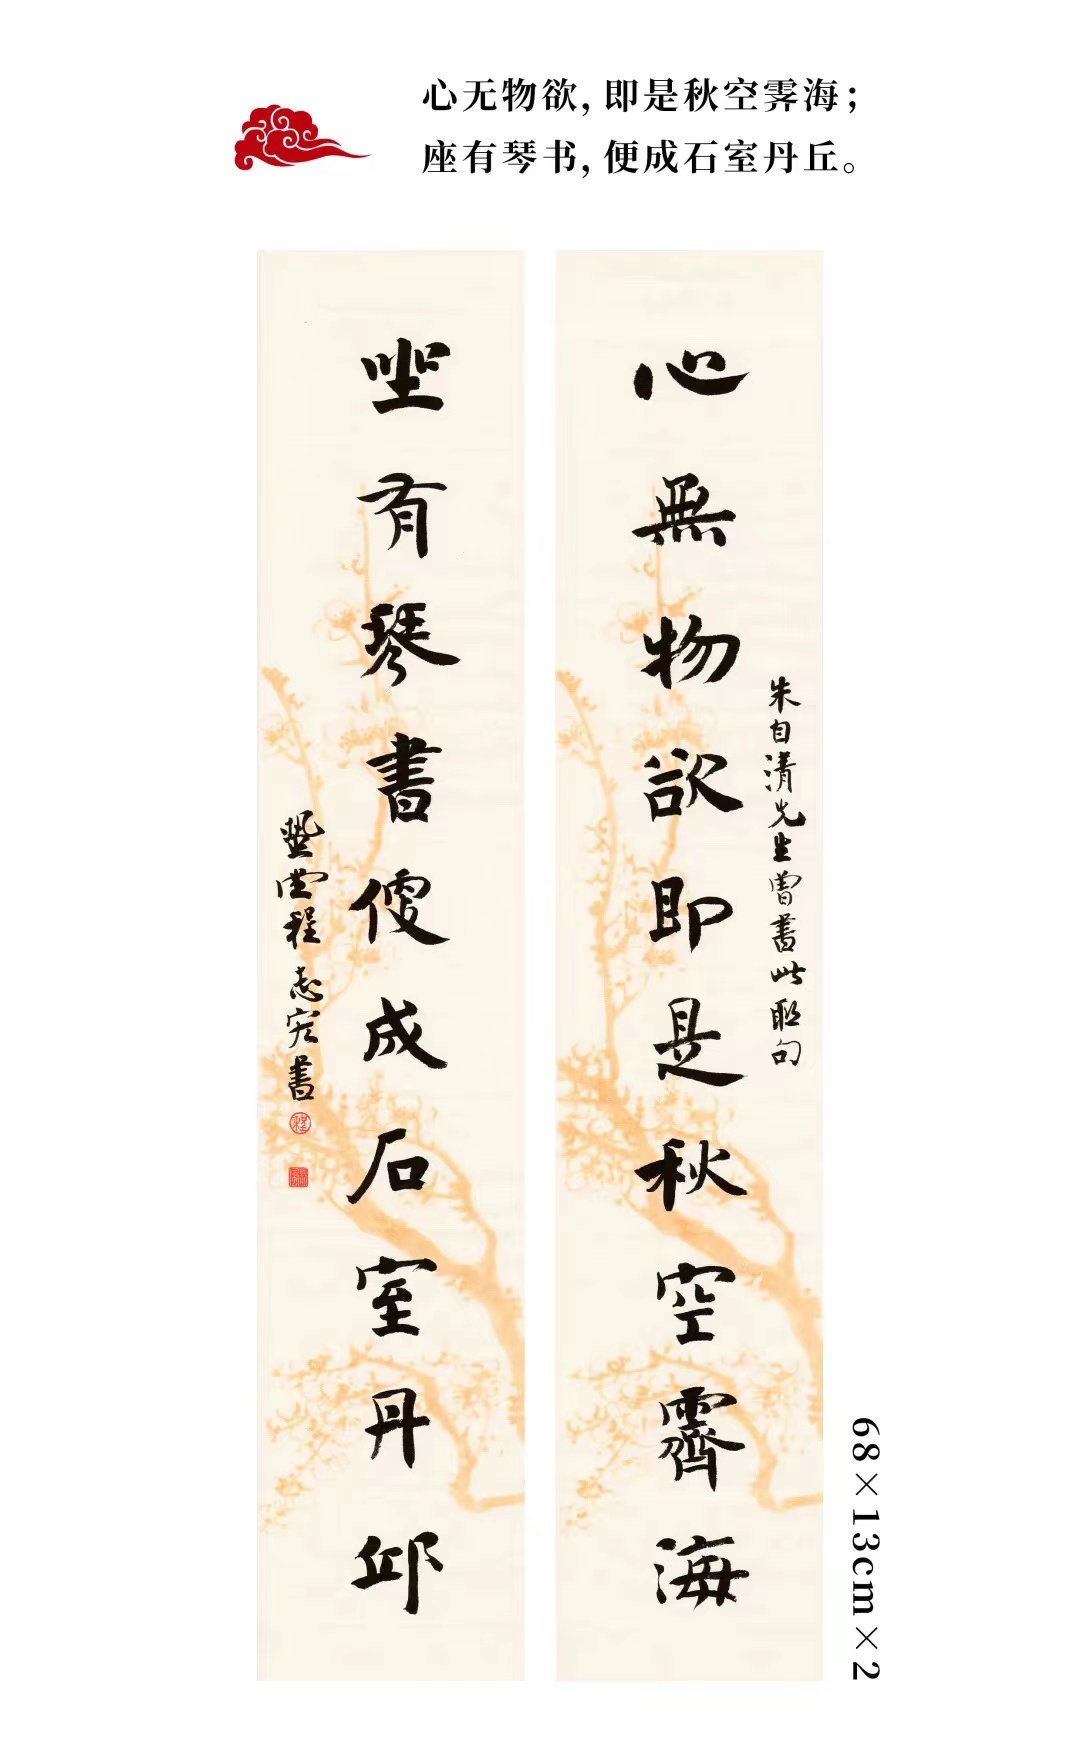 心无物欲，即是秋空霁海；
座有琴书，便成石室丹丘。
心無物欲即是秋空霽海
朱自清先生曾書此聯句
坐有琴書便成石室丹邱
程志宏書
68×13cm×2